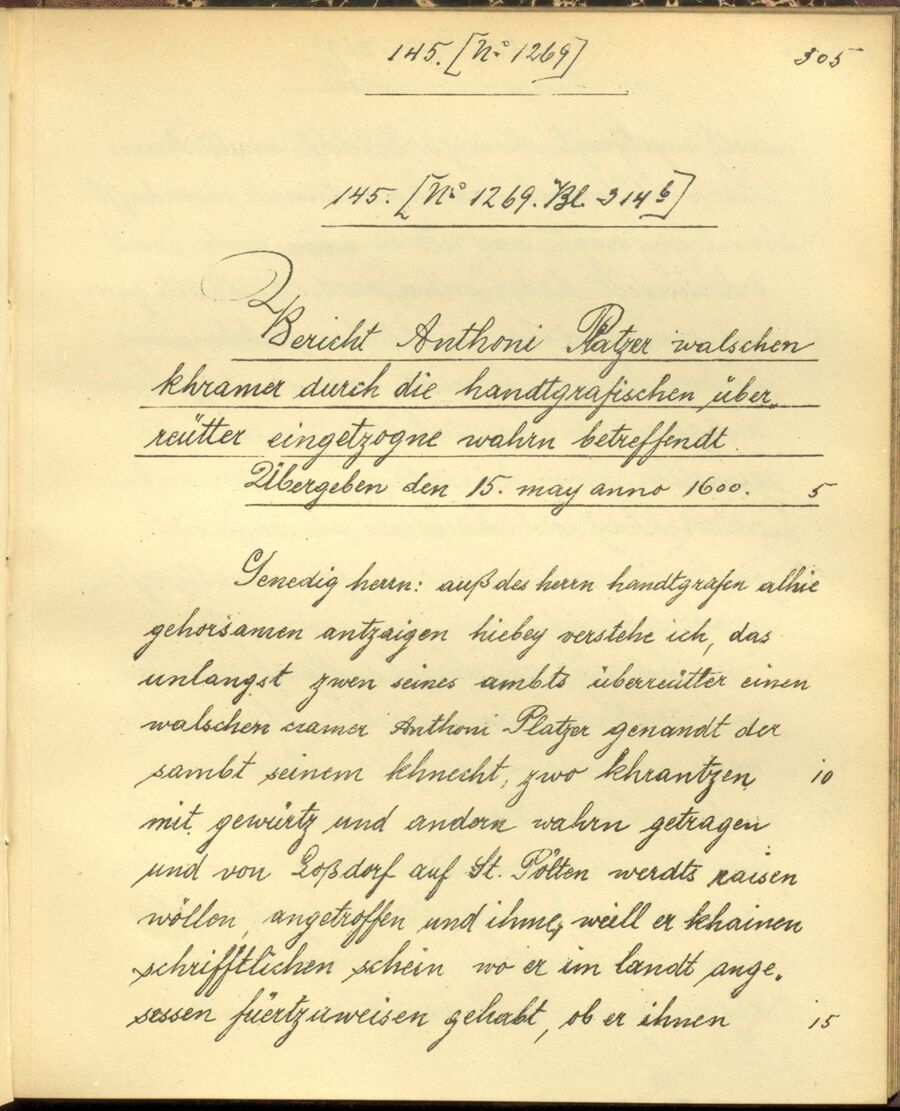 145. [No 1269]
305
145. [No 1269. Bl. 314b]
Bericht Anthoni Platzer walschen
khramer durch die handtgrafischen über-
reütter eingetzogne wahrn betreffendt.
Übergeben den 15. may anno 1600. 5
Genedig herrn: auß des herrn handtgrafen alhie
gehorsamen antzaigen hiebey verstehe ich, das
unlangst zwen seines ambts überreütter einen
walschen cramer Anthoni Platzer genandt der
sambt seinem khnecht, zwo khrantzen 10
mit gewürtz und andern wahrn getragen
und von Loßdorf auf St. Pölten werdts raisen
wöllen, angetroffen und ihme, weill er khainen
schrifftlichen schein wo er im landt ange-
sessen füertzuweisen gehabt, ob er ihnen 15